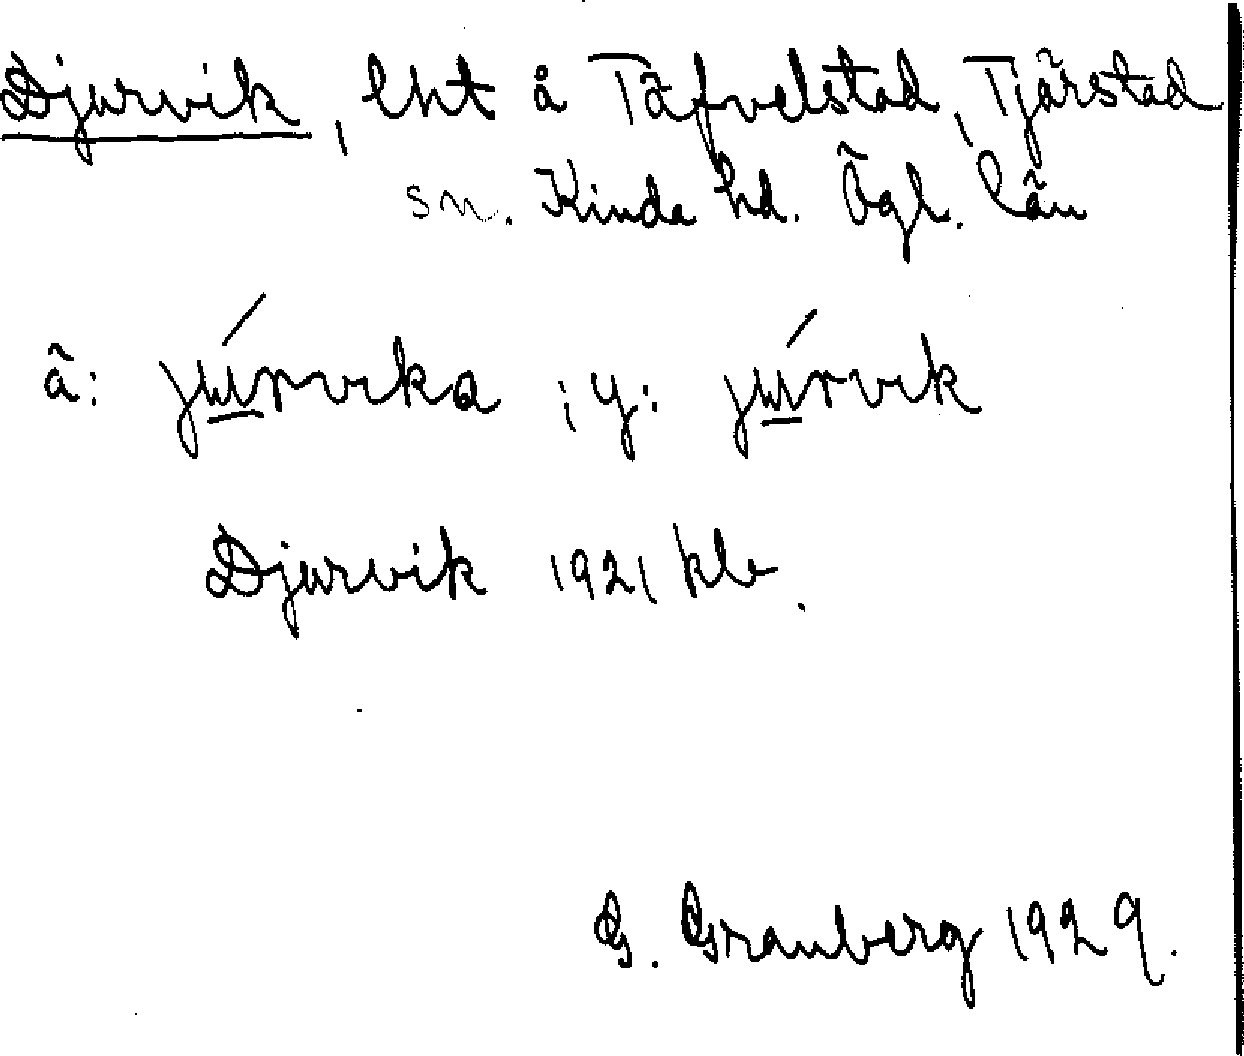 Djurvik, lht å Täfvelstad, Tjärstad
sn. Kinda hd. Ögl. län
ä: júrvika ; y: júrvik
Djurvik 1921 kb.
G. Granberg 1929.